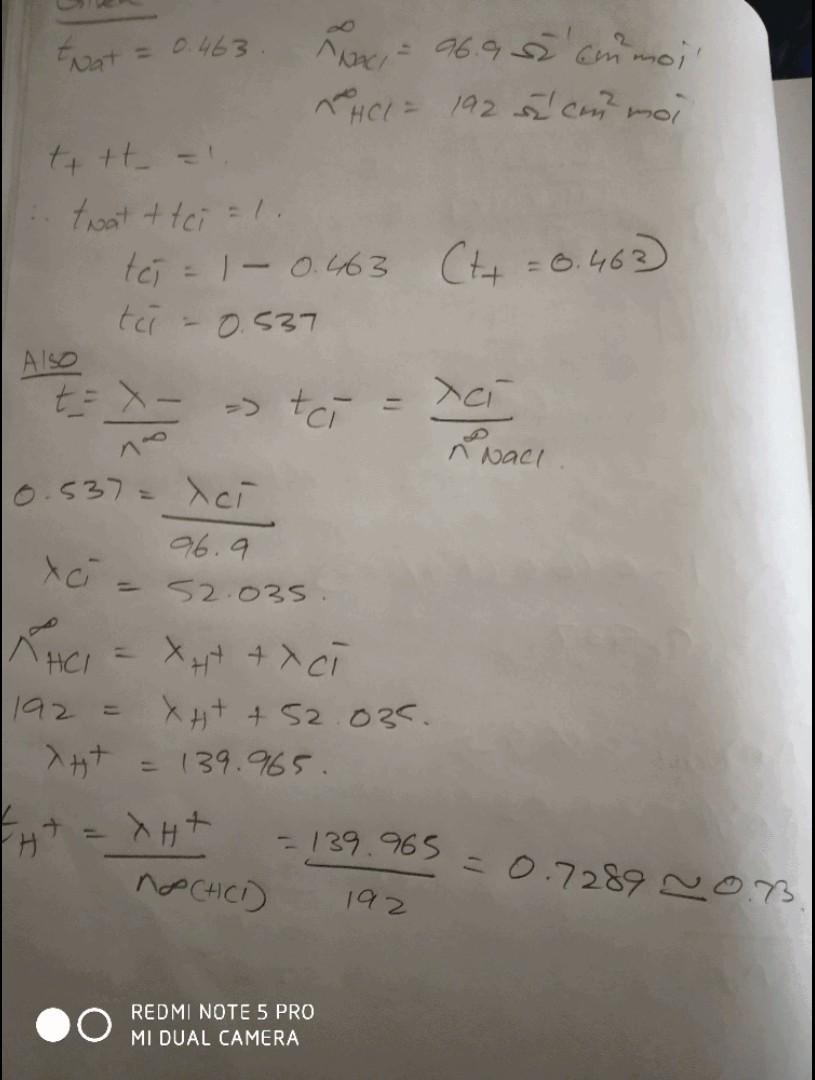 Given
t_Na+ = 0.463. Λ^∞_NaCl = 96.9 Ω^-1 cm^2 mol^-1
Λ^∞_HCl = 192 Ω^-1 cm^2 mol^-
t_+ + t_- = 1.
∴ t_Na+ + t_Cl- = 1.
t_Cl- = 1 - 0.463 (t_+ = 0.463)
t_Cl- = 0.537
Also
t_- = λ_- / Λ^∞ => t_Cl- = λ_Cl- / Λ^∞_NaCl.
0.537 = λ_Cl- / 96.9
λ_Cl- = 52.035.
Λ^∞_HCl = λ_H+ + λ_Cl-
192 = λ_H+ + 52.035.
λ_H+ = 139.965.
t_H+ = λ_H+ / Λ∞(HCl) = 139.965 / 192 = 0.7289 ≃ 0.73.
REDMI NOTE 5 PRO
MI DUAL CAMERA